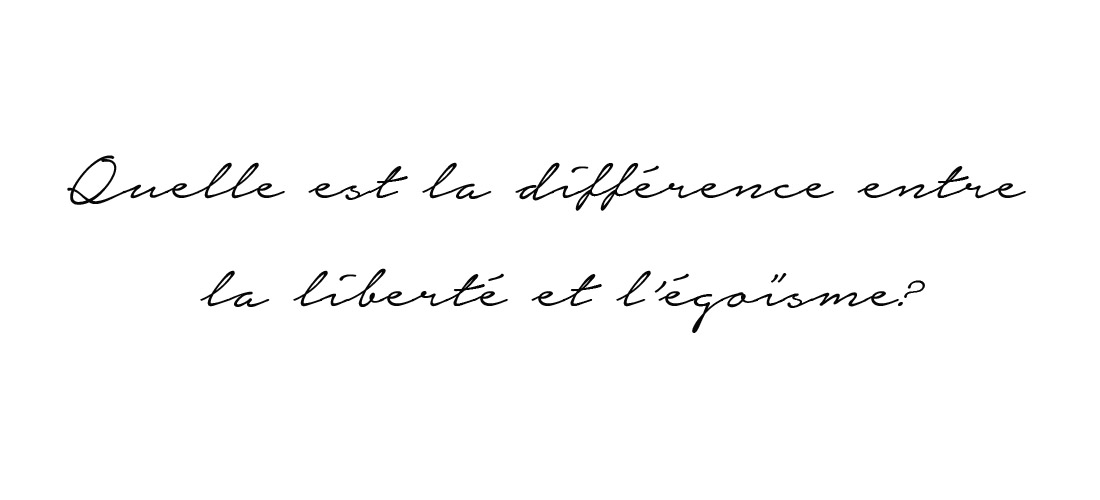 Quelle est la différence entre
la liberté et l'égoïsme?